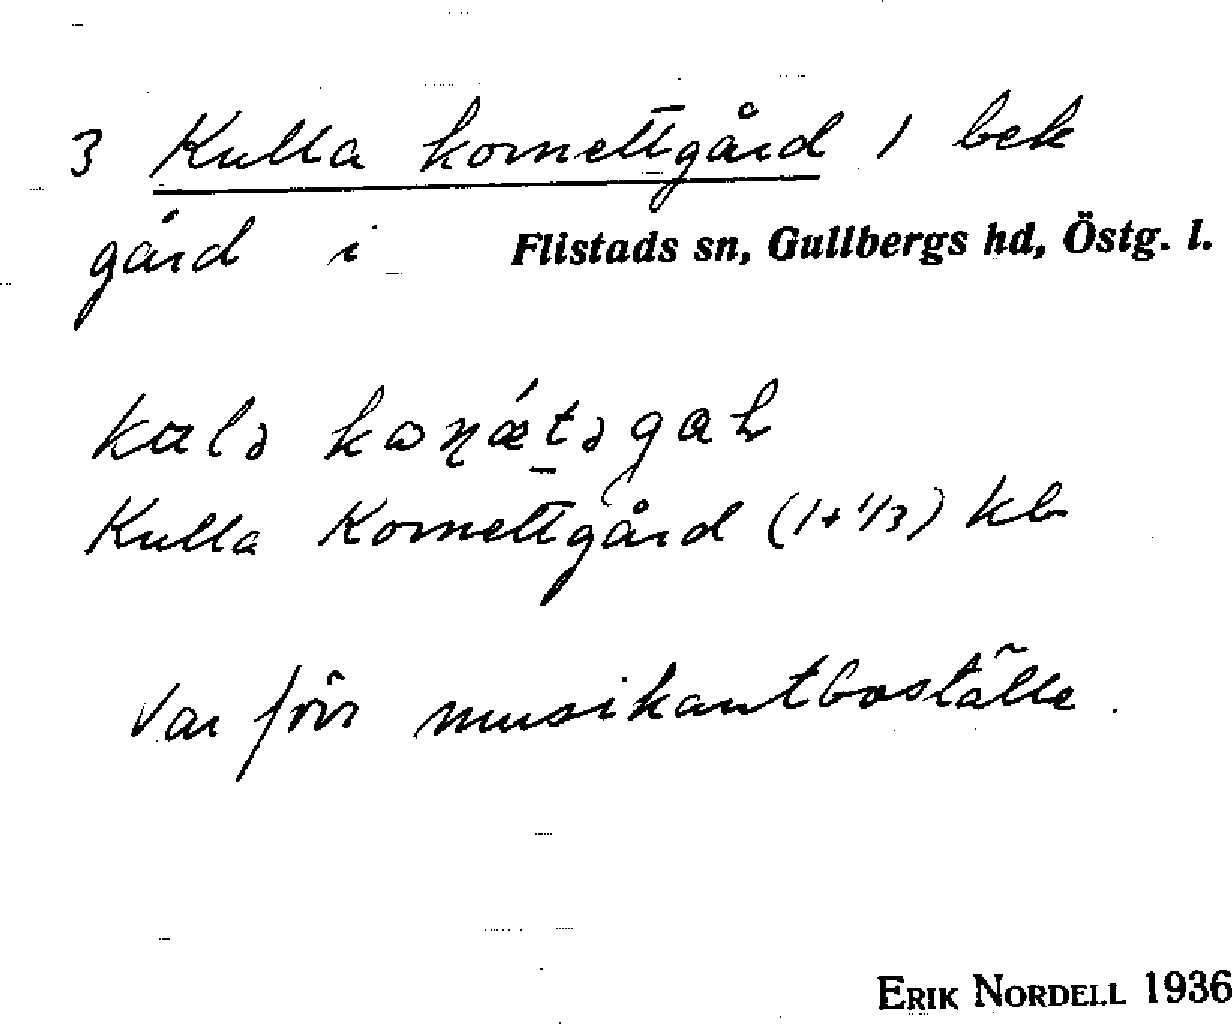 3 Kulla kornettgård 1 bek
gård i Flistads sn, Gullbergs hd, Östg. l.
Kulla Kornettgård (1+1/3) kb
Var förr musikantboställe.
ERIK NORDELL 1936